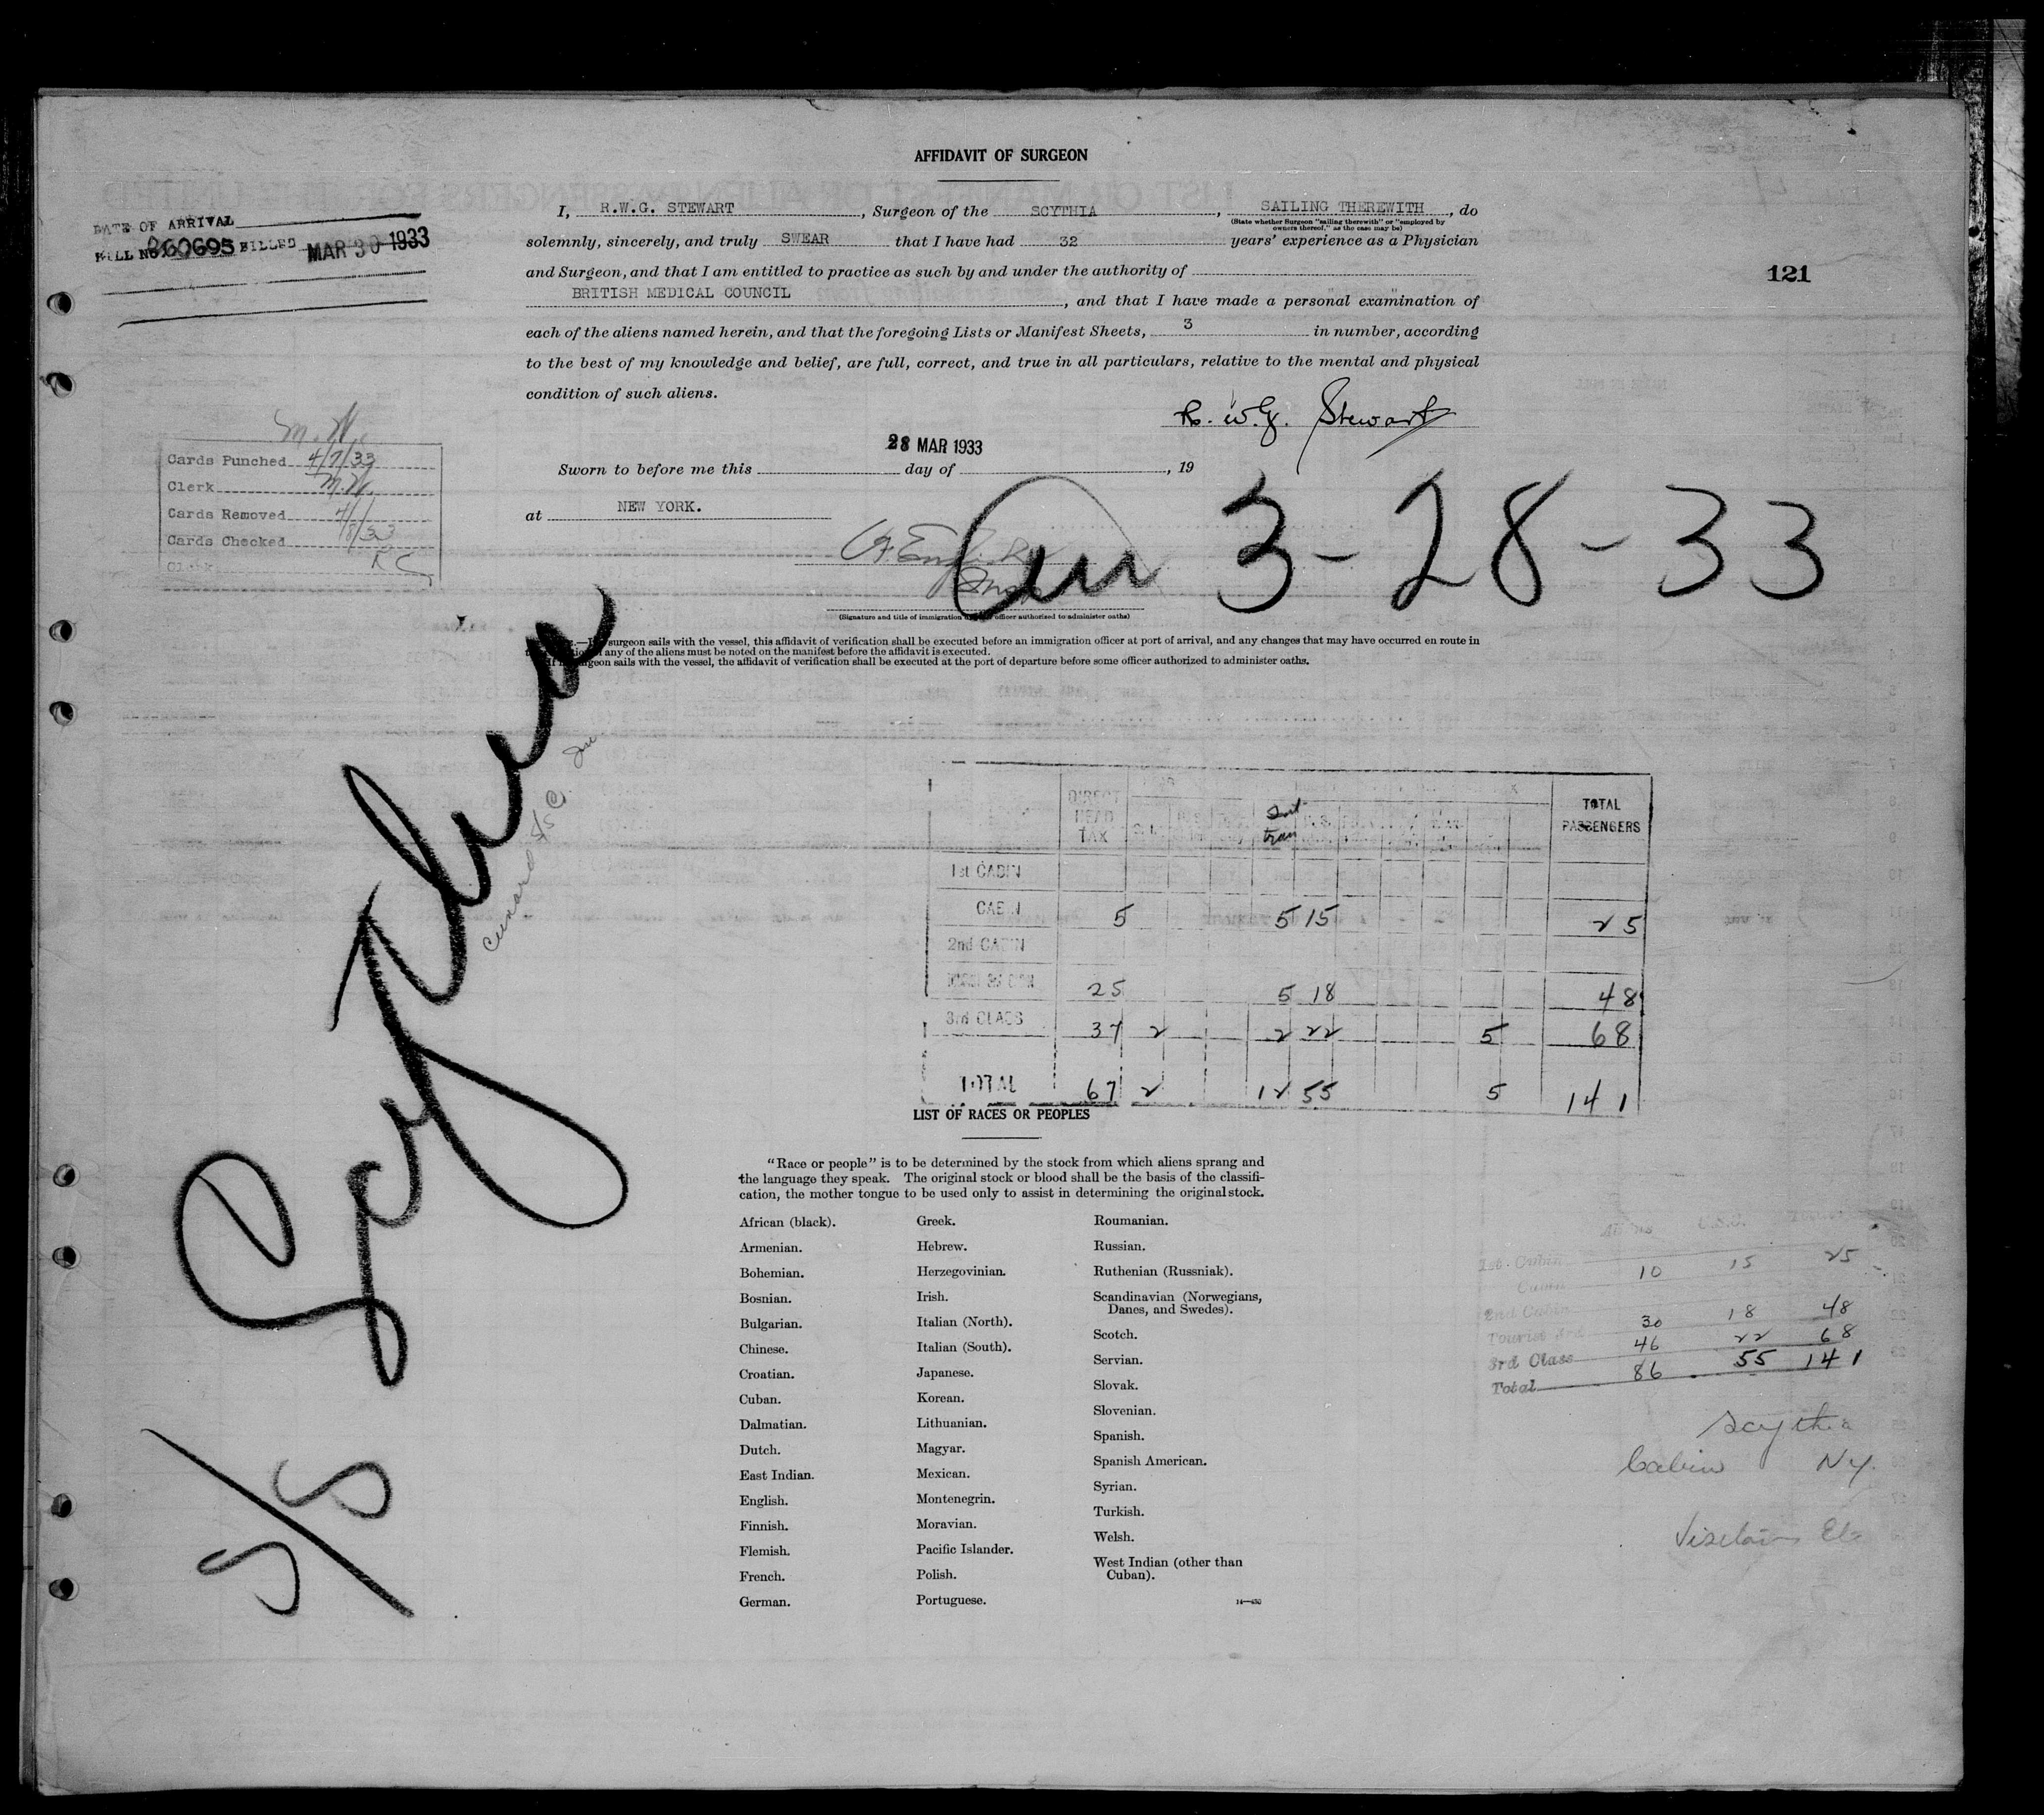 AFFIDAVIT OF SURGEON
DATE OF ARRIVAL
BILL NO. 260695 BILLED MAR 30 1933
I, R.W.G. STEWART, Surgeon of the SCYTHIA, SAILING THEREWITH, do
(State whether Surgeon "sailing therewith" or "employed by
owners thereof," as the case may be)
solemnly, sincerely, and truly SWEAR that I have had 32 years' experience as a Physician
and Surgeon, and that I am entitled to practice as such by and under the authority of
121
BRITISH MEDICAL COUNCIL, and that I have made a personal examination of
each of the aliens named herein, and that the foregoing Lists or Manifest Sheets, 3 in number, according
to the best of my knowledge and belief, are full, correct, and true in all particulars, relative to the mental and physical
condition of such aliens.
R. W. G. Stewart
28 MAR 1933
Sworn to before me this day of , 19
at NEW YORK.
M.W.
Cards Punched 4/7/33
Clerk M.W.
Cards Removed 4/
Cards Checked 8/33
Clerk RC
3-28-33
(Signature and title of immigration officer authorized to administer oaths)
surgeon sails with the vessel, this affidavit of verification shall be executed before an immigration officer at port of arrival, and any changes that may have occurred en route in
any of the aliens must be noted on the manifest before the affidavit is executed.
sails with the vessel, the affidavit of verification shall be executed at the port of departure before some officer authorized to administer oaths.
S/S Scythia
Cunard S/S Co.
DIRECT HEAD TAX TOTAL PASSENGERS
1st CABIN
CABIN 5 5 15 25
2nd CABIN
25 5 18 48
3rd CLASS 37 2 2 22 5 68
TOTAL 67 2 12 55 5 141
LIST OF RACES OR PEOPLES
"Race or people" is to be determined by the stock from which aliens sprang and
the language they speak. The original stock or blood shall be the basis of the classifi-
cation, the mother tongue to be used only to assist in determining the original stock.
African (black).
Armenian.
Bohemian.
Bosnian.
Bulgarian.
Chinese.
Croatian.
Cuban.
Dalmatian.
Dutch.
East Indian.
English.
Finnish.
Flemish.
French.
German.
Greek.
Hebrew.
Herzegovinian.
Irish.
Italian (North).
Italian (South).
Japanese.
Korean.
Lithuanian.
Magyar.
Mexican.
Montenegrin.
Moravian.
Pacific Islander.
Polish.
Portuguese.
Roumanian.
Russian.
Ruthenian (Russniak).
Scandinavian (Norwegians,
Danes, and Swedes).
Scotch.
Servian.
Slovak.
Slovenian.
Spanish.
Spanish American.
Syrian.
Turkish.
Welsh.
West Indian (other than
Cuban).
14—430
Aliens U.S.C.
1st Cabin
Cabin 10 15 25
2nd Cabin
Tourist 3rd 30 18 48
3rd Class 46 22 68
Total 86 55 141
Scythia
Cabin NY.